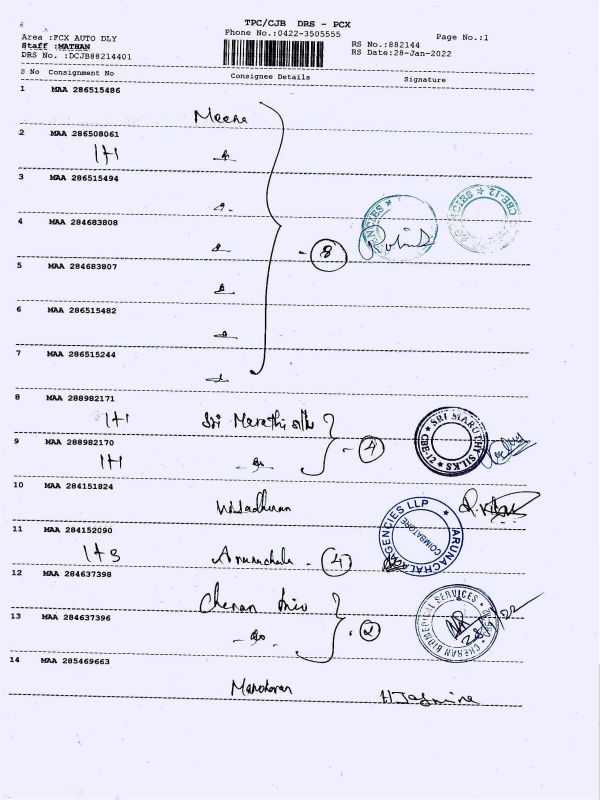 TPC/CJB DRS - PCX
Phone No.:0422-3505555
Page No.:1
Area :FCX AUTO DLY
Staff :MATHAN
DRS No. :DCJB88214401
RS No.:882144
RS Date:28-Jan-2022
S No Consignment No Consignee Details Signature
1 MAA 286515486
Meena
2 MAA 286508061
1+1
3 MAA 286515494
4 MAA 284683808
8
5 MAA 284683807
6 MAA 286515482
7 MAA 286515244
8 MAA 288982171
1+1 Sri
SRI MARUTHY SILKS
CBE-12
9 MAA 288982170
1+1
4
10 MAA 284151824
11 MAA 284152090
1+3 Arunachala - 4
ARUNACHALA AGENCIES LLP
COIMBATORE
12 MAA 284637398
13 MAA 284637396
2
CHERAN BIOMEDICAL SERVICES
28/1/22
14 MAA 285469663
Manoharan
H Jasmine